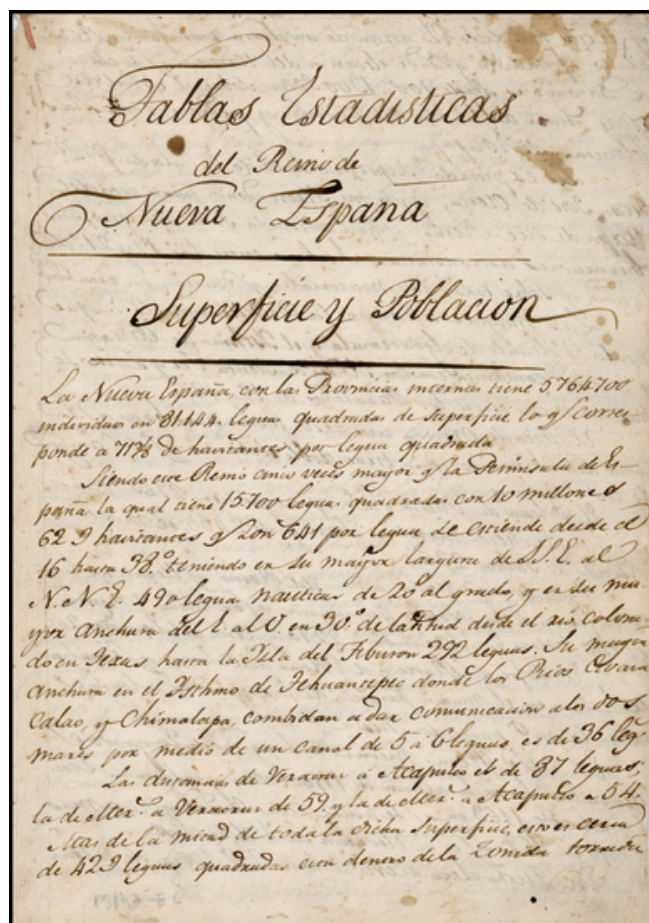 Tablas Estadisticas
del Reino de
Nueva España
Superficie y Poblacion
La Nueva España, con las Provincias internas tiene 5.764.700
individuos en 81.144 leguas quadradas de superficie lo q̃ corres
ponde a 71⅓ de havitantes por legua quadrada
Siendo este Reino cinco veces mayor q̃ la Peninsula de Es-
paña la qual tiene 15.700 leguas quadradas con 10 millones
havitantes q̃ son 641 por legua se estiende desde el
16 hasta 38.° teniendo en su mayor largura de S.S.E. al
N.N.E. 490 leguas nauticas de 20 al grado, y en su ma-
yor anchura del E. al O. en 30.° de latitud desde el rio colora-
do en Texas hasta la Isla del Tiburon 292 leguas. Su
anchura en el Isthmo de Tehuantepec donde los Rios
y Chimalapa, combidan a dar comunicacion a los dos
mares por medio de un canal de 5 a 6 leguas, es de 36 leg.s
Las distancias de Veracruz a Acapulco es de 87 leguas,
la de Mex.° a Veracruz de 59, y la de Mex.° a Acapulco a 54.
Mas de la mitad de toda la dicha Superficie, esto es cerca
de leguas quadradas esta dentro de la Zona torrida